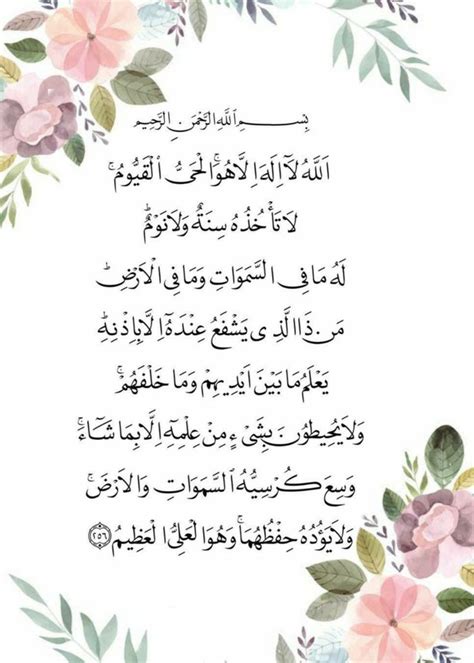 بِسْمِ ٱللَّهِ ٱلرَّحْمَنِ ٱلرَّحِيمِ
اَللَّهُ لَآ اِلَهَ اِلَّا هُوَۚ اَلْحَىُّ الْقَيُّومُۚ
لَا تَأْخُذُهُ سِنَةٌ وَلَا نَوْمٌۗ
لَهُ مَا فِى السَّمَوَاتِ وَمَا فِى الْاَرْضِۗ
مَن ذَا الَّذِى يَشْفَعُ عِنْدَهُٓ اِلَّا بِاِذْنِهِۗ
يَعْلَمُ مَا بَيْنَ اَيْدِيهِمْ وَمَا خَلْفَهُمْۚ
وَلَا يُحِيطُونَ بِشَىْءٍ مِنْ عِلْمِهِٓ اِلَّا بِمَا شَآءَۚ
وَسِعَ كُرْسِيُّهُ السَّمَوَاتِ وَالْاَرْضَۚ
وَلَا يَؤُدُهُ حِفْظُهُمَاۚ وَهُوَ الْعَلِىُّ الْعَظِيمُ ﴿٢٥٦﴾